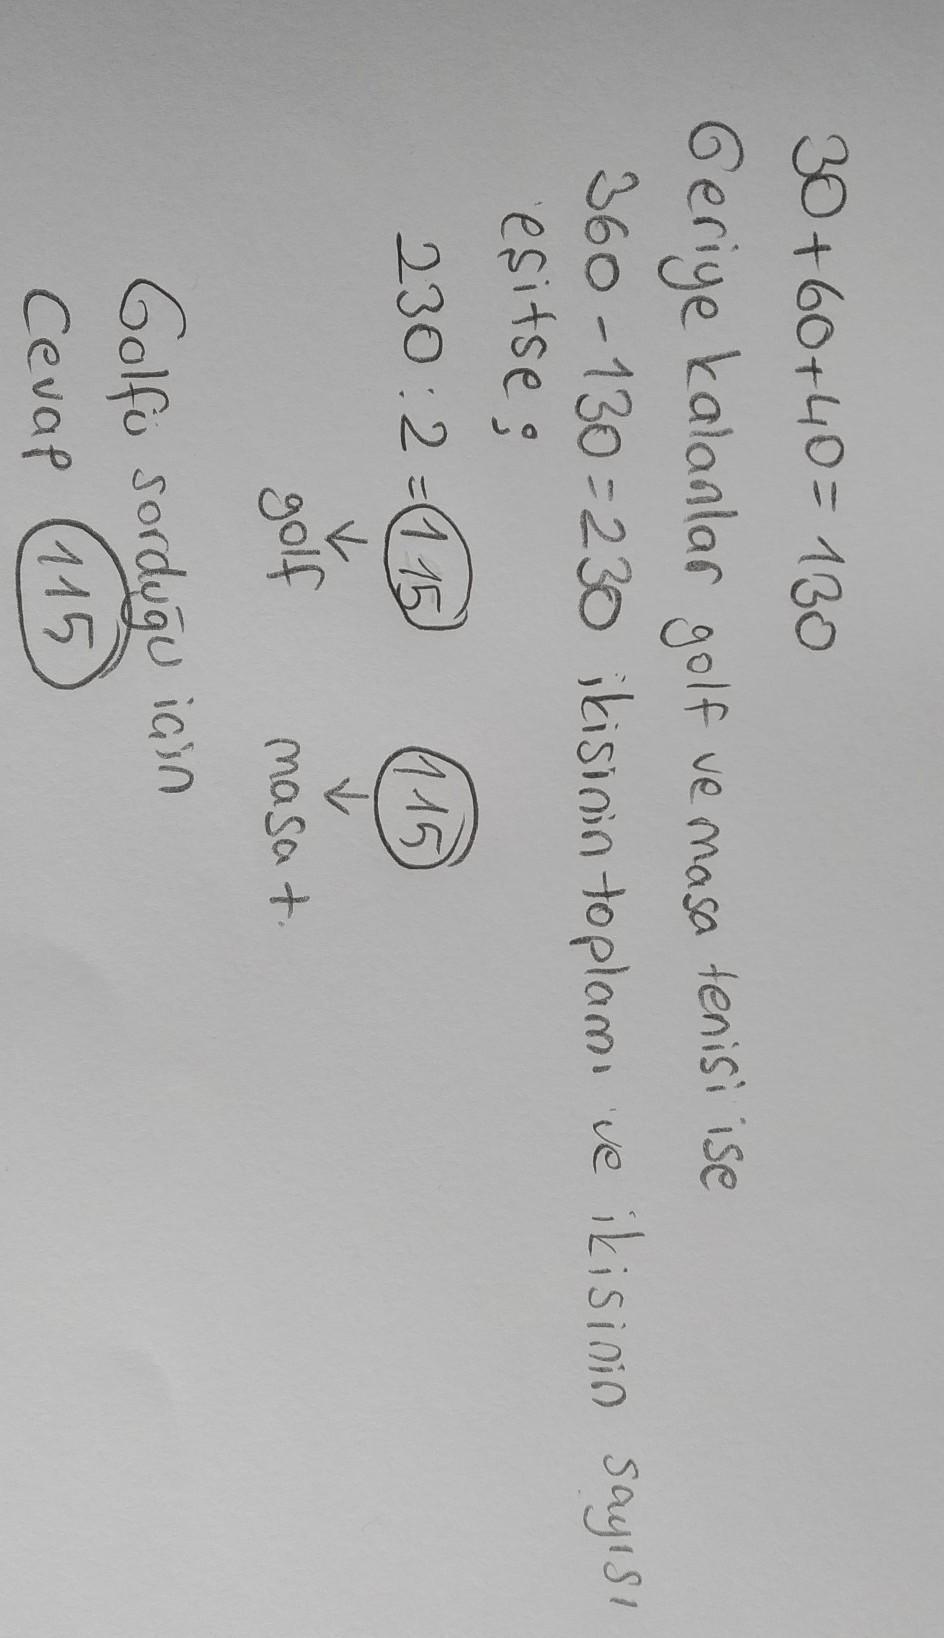 30+60+40=130
Geriye kalanlar golf ve masa tenisi ise
360-130=230 ikisinin toplamı ve ikisinin sayısı
eşitse;
230:2=115 115
↓ ↓
golf masa t.
Golfü sorduğu için
Cevap 115